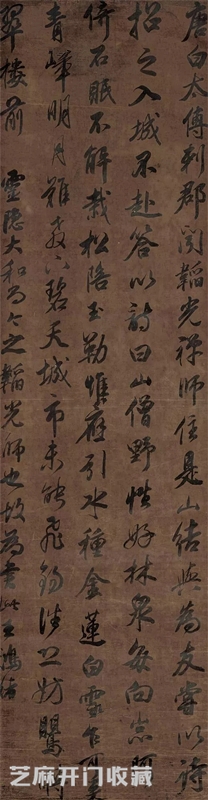 唐白太傅刺郡闻韬光禅师住是山结与为友尝以诗
招之入城不赴答以诗曰山僧野性好林泉每向岩阿
倚石眠不解栽松陪玉勒惟应引水种金莲白云乍可来
青嶂明月难教下碧天城市未能飞锡去恐妨莺啭
翠楼前 灵隐大和尚之韬光师也故为书 王鸿绪
芝麻开门收藏